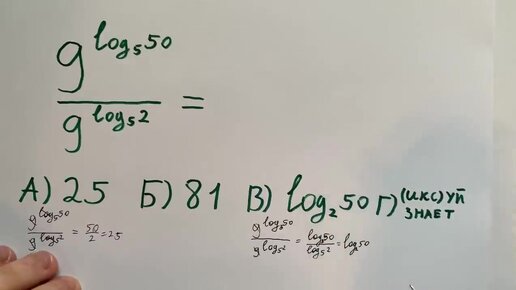 9^log₅50
9^log₅2 =
А) 25 Б) 81 В) log₂50 Г) (икс)уй
ЗНАЕТ
9^log₅50 / 9^log₅2 = 50/2 = 25
9^log₅50 / 9^log₅2 = log50/log₅2 = log50